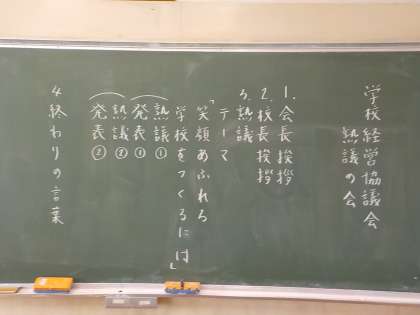 学校経営協議会
熟議の会
1.会長挨拶
2.校長挨拶
3.熟議
テーマ
「笑顔あふれる
学校をつくるには」
熟議①
発表①
熟議②
発表②
4終わりの言葉